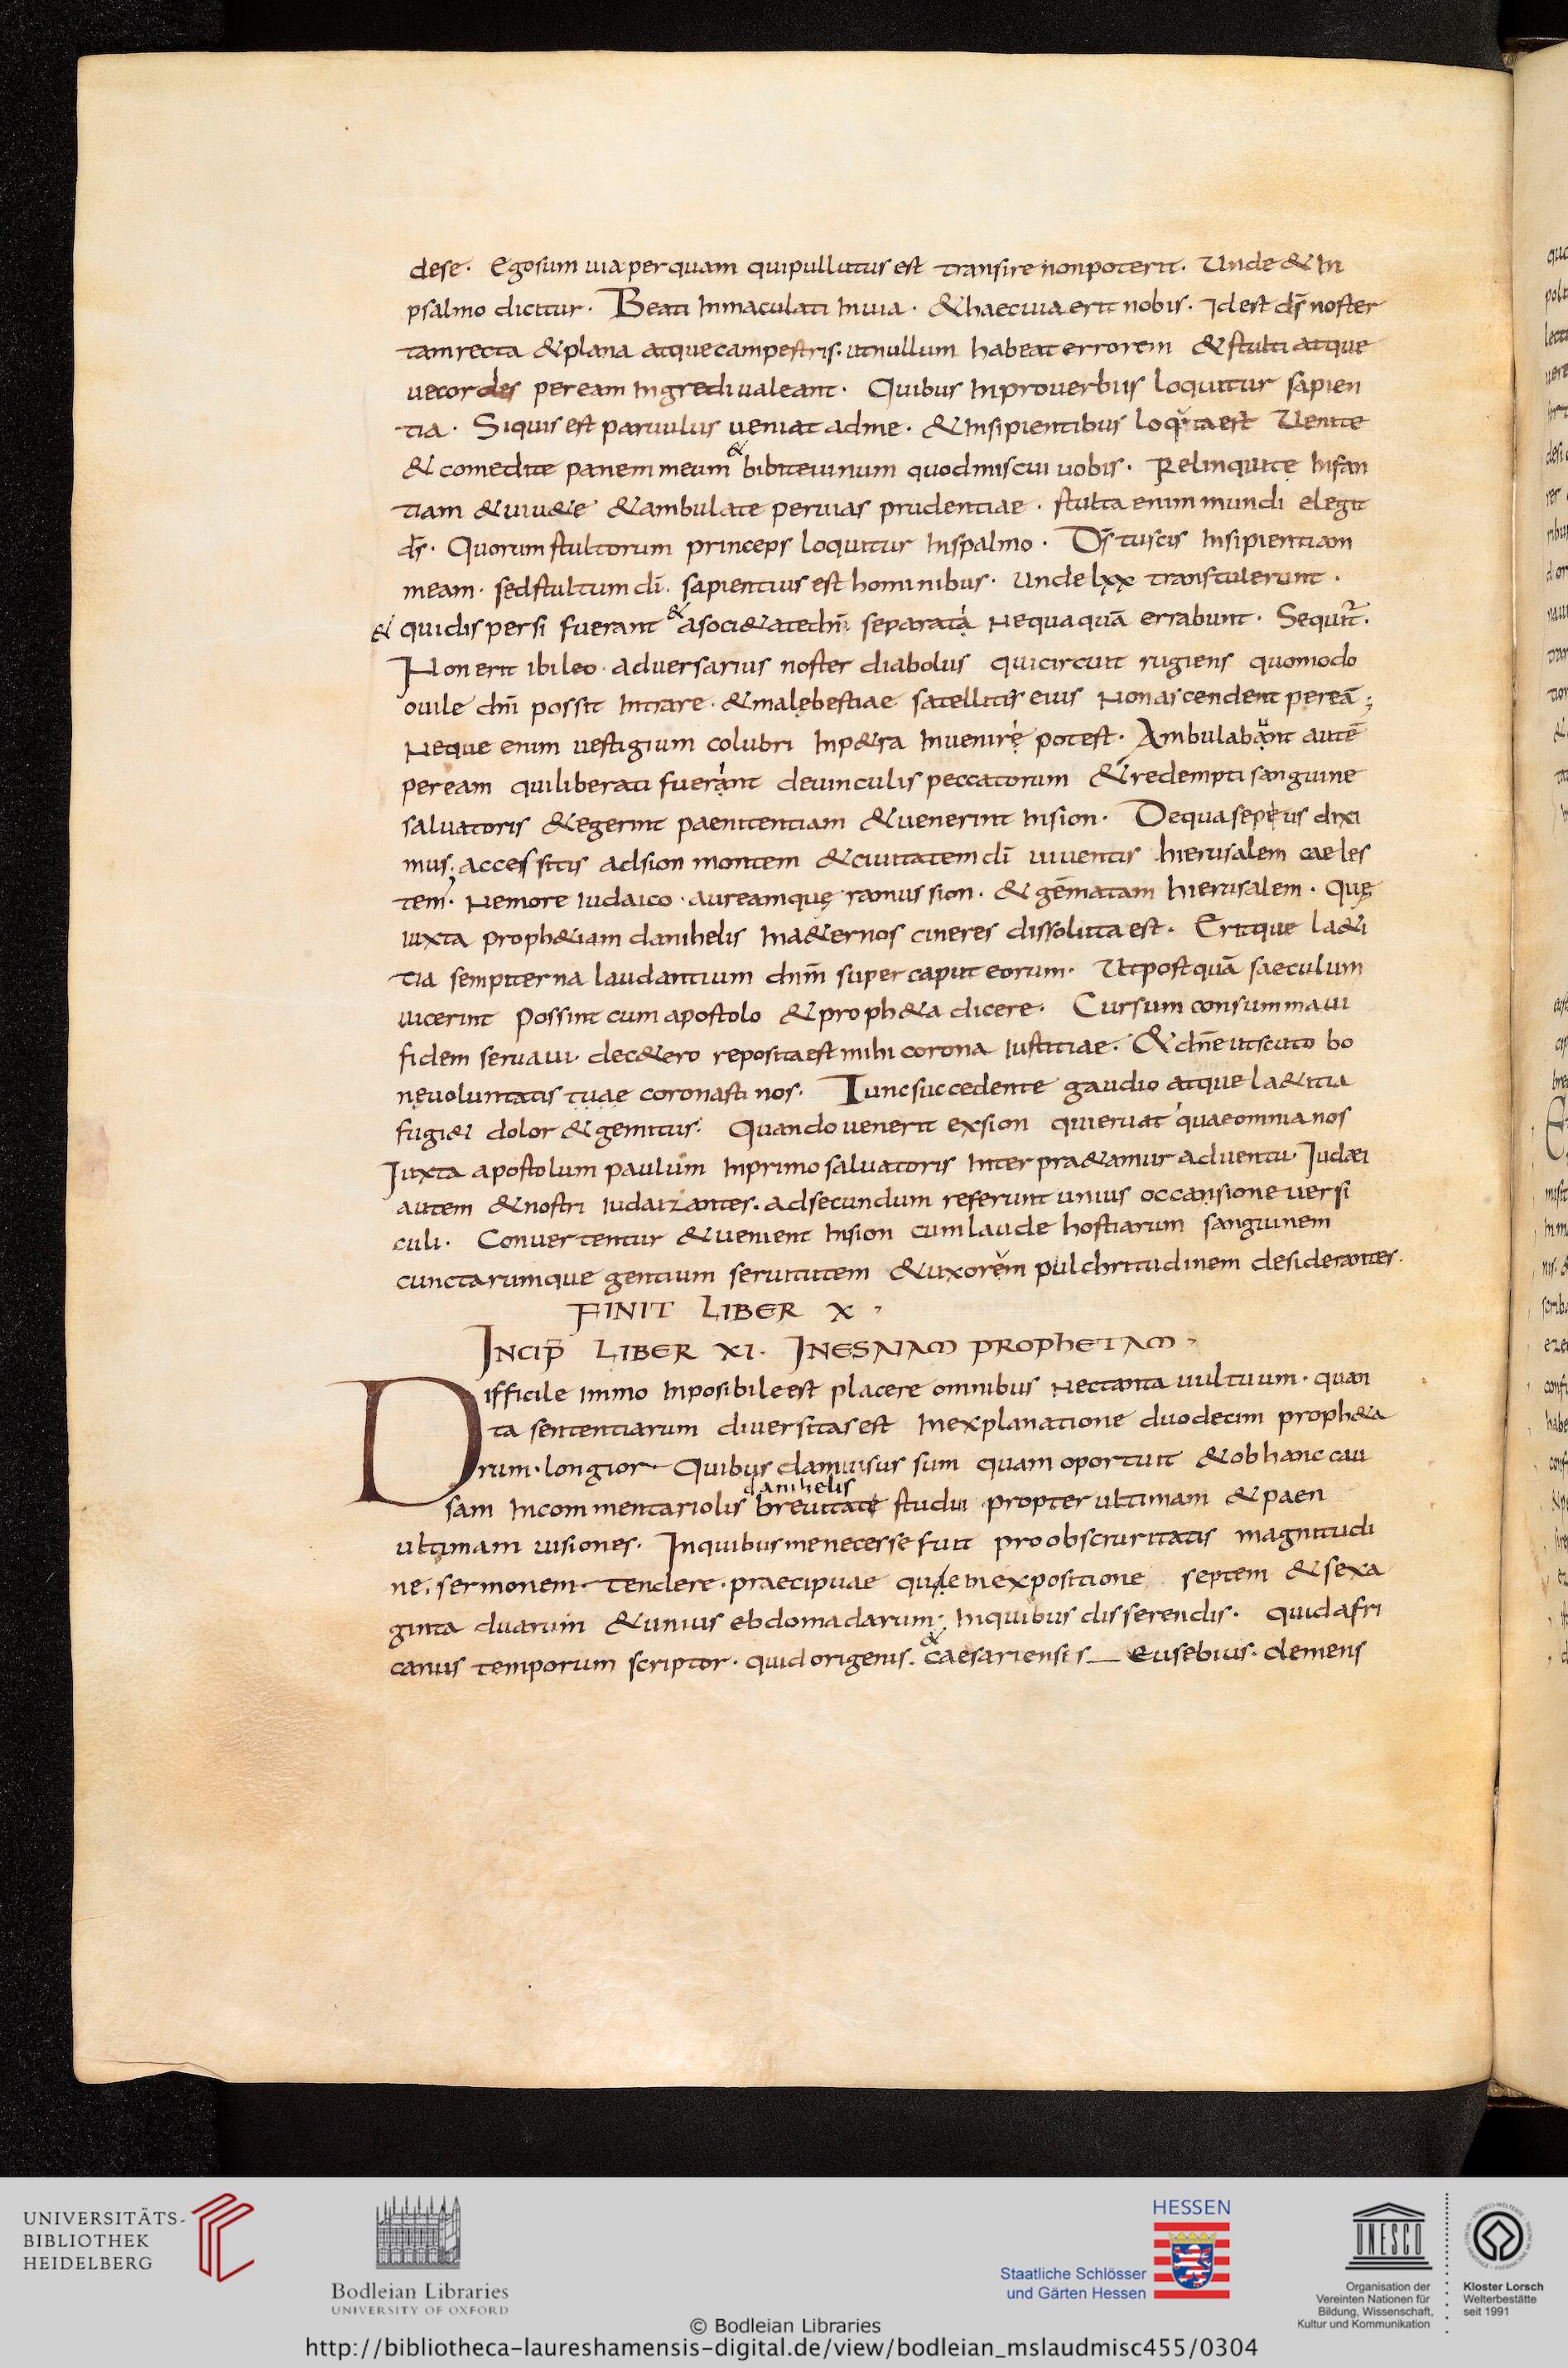 dese· Egosum uia per quam quipullutus est transire nonpoterit. Unde & in
psalmo dicitur· Beati Inmaculati Inuia· & haecuia erit nobis. Idest d̄s noster
tamrecta & plana atquecampestris. utnullum habeat errorem & stulti atque
uecordes pereamIngredi ualeant· Quibus Inprouerbiis loquitur sapien
tia· Siquis est paruulus ueniat adme· & Insipientibus loquuta est Uenite
& comedite panem meum & bibiteuinum quodmiscui uobis· Relinquite Infan
tiam & uiu&e & ambulate peruias prudentiae· stulta enim mundi elegit
d̄s· Quorum stultorum princeps loquitur Inspalmo· D̄s tuscis Insipientiam
meam· sedstultum dī· sapientius est hominibus· Unde lxx transtulerunt·
& quidispersi fuerant & asoci&atechīi separata Nequaquā errabunt· Sequit̄·
Non erit ibi leo· aduersarius noster diabolus quicircuit rugiens quomodo
ouile chīi possit Intrare· & malebestiae satellites eius Non ascendent pereā;
Neque enim uestigium colubri Inp&ra Inuenire potest· Ambulabunt autē
peream quiliberati fuerint deuinculis peccatorum & redempti sanguine
saluatoris & egerint paenitentiam & uenerint Insion· Dequasepeius dixi
mus; accessitis adsion montem & ciuitatem dī uiuentis hierusalem caeles
tem· Nemore iudaico· aureamque ramus sion· & gēmatam hierusalem· Quę
iuxta proph&iam danihelis In&aernos cineres dissoluta est· Eritque la&i
tia sempiterna laudantium dn̄m super caput eorum· Utpostquā saeculum
uicerint Possint cum apostolo & proph&a dicere· Cursum consummaui
fidem seruaui· dec&ero reposita est mihi corona iustitiae· & dn̄e utscuto bo
neuoluntatis tuae coronasti nos· Tunc succedente gaudio atque la&itia
fugi&i dolor & gemitus· Quando uenerit exsion quieruat quaeomnia nos
Iuxta apostolum paulum Inprimo saluatoris Interpra&amur aduentu· Iudaei
autem & nostri iudaizantes· adsecundum referunt unius occansione uersi
culi· Conuertentur & uenient Insion cumlaude hostiarum sanguinem
cunctarumque gentium seruitutem & uxorem pulchritudinem desiderantes·
FINIT LIBER X·
INCIP̄ LIBER XI· INESAIAM PROPHETAM·
Difficile immo Inposibile est placere omnibus Nectanta uultuum· quan
ta sententiarum diuersitas est Inexplanatione duodecim proph&a
rum· longior Quibusdamuisus sum quam oportuit & obhanc cau
sam Incommentariolis danihelis breuitate studui propter ultimam & paen
ultimam uisiones· Inquibusmenecesse fuit proobscuritatis magnitudi
ne· sermonem tendere· praecipuae quae Inexpositione septem & sexa
ginta duarum & unius ebdomadarum; Inquibus disserendis· quidafri
canus temporum scriptor· quidorigenis· & caesariensis Eusebius· clemens
UNIVERSITÄTS-
BIBLIOTHEK
HEIDELBERG
Bodleian Libraries
UNIVERSITY OF OXFORD
HESSEN
Staatliche Schlösser
und Gärten Hessen
UNESCO
Organisation der
Vereinten Nationen für
Bildung, Wissenschaft,
Kultur und Kommunikation
Kloster Lorsch
Welterbestätte
seit 1991
© Bodleian Libraries
http://bibliotheca-laureshamensis-digital.de/view/bodleian_mslaudmisc455/0304